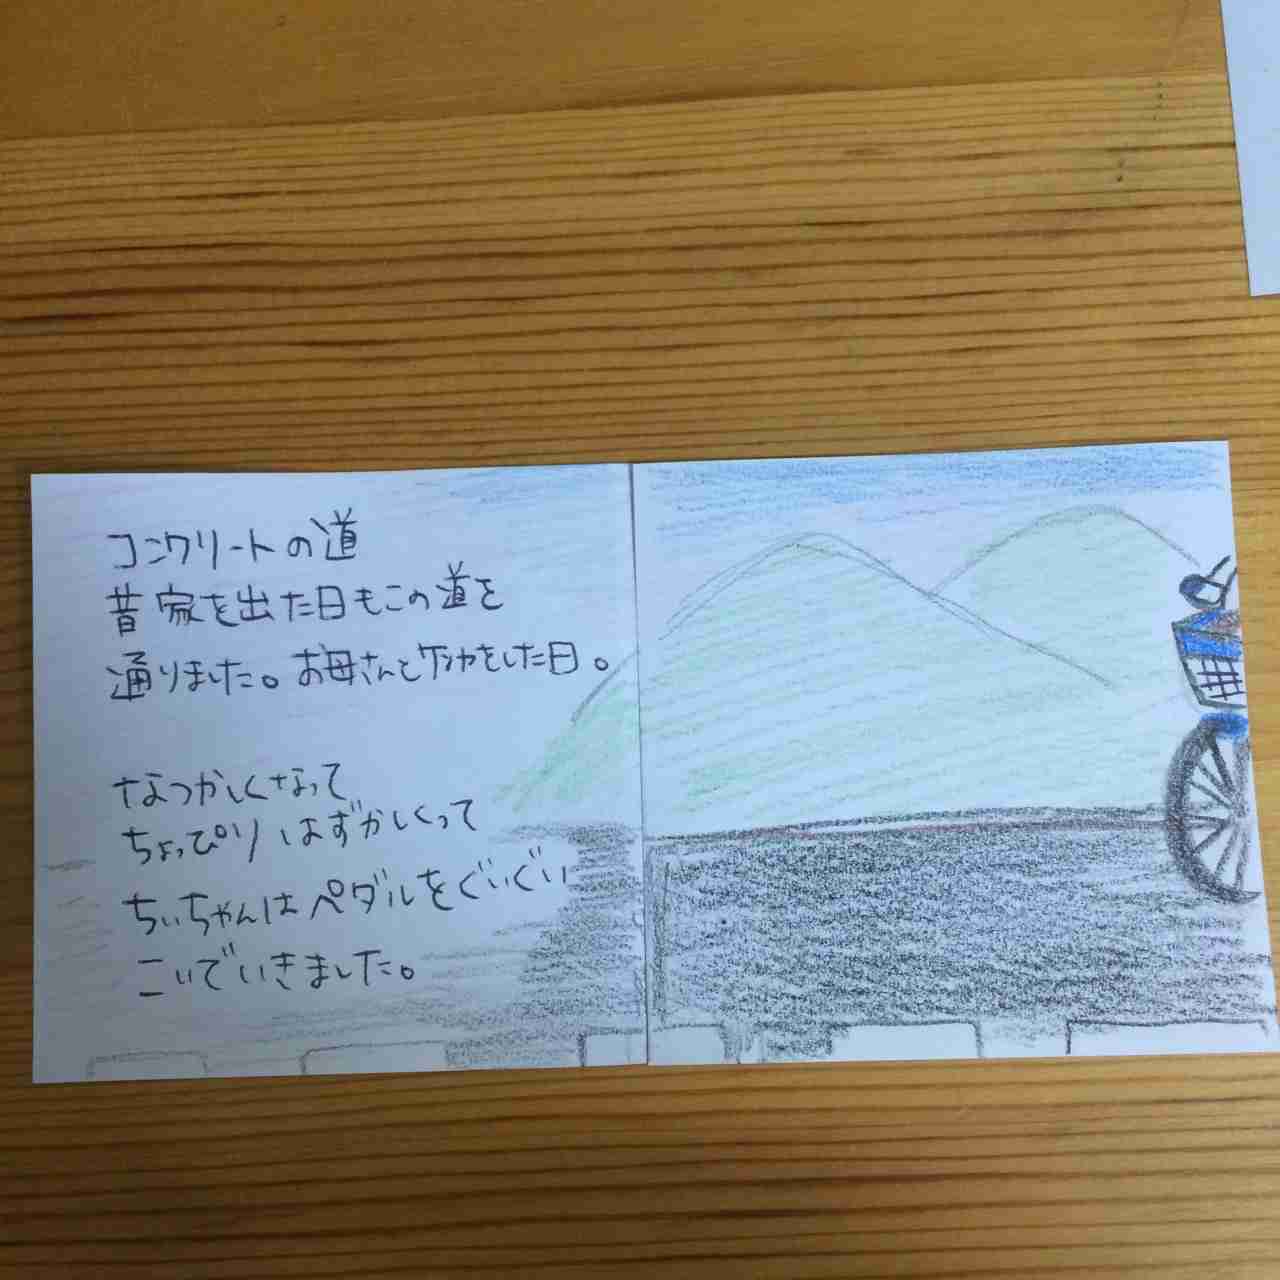 コンクリートの道
昔家を出た日もこの道を
通りました。お母さんとケンカをした日。
なつかしくなって
ちょっぴりはずかしくって
ちぃちゃんはペダルをぐいぐい
こいでいきました。